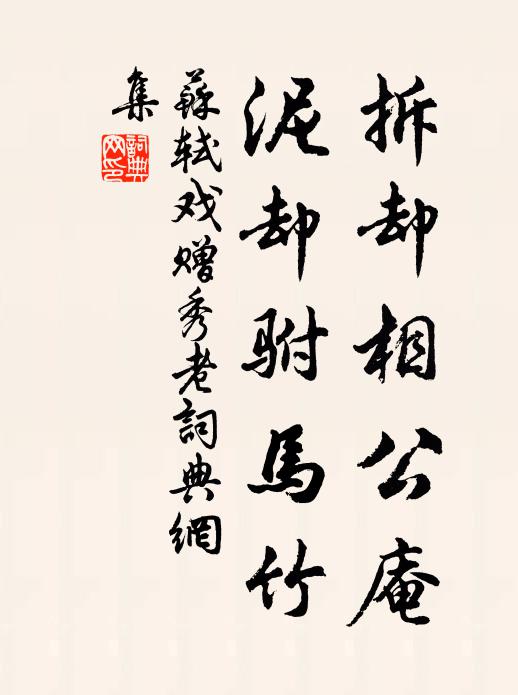 拆却相公庵
泥却駙馬竹
蘇軾戏赠秀老詞典網
集
詞典網印